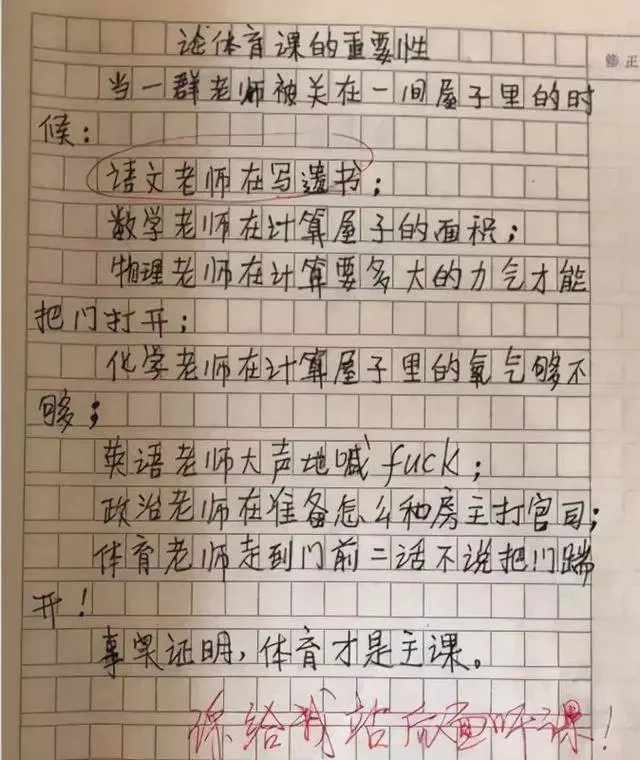 论体育课的重要性
当一群老师被关在一间屋子里的时
候：
语文老师在写遗书；
数学老师在计算屋子的面积；
物理老师在计算要多大的力气才能
把门打开；
化学老师在计算屋子里的氧气够不
够；
英语老师大声地喊fuck；
政治老师在准备怎么和房主打官司；
体育老师走到门前二话不说把门踹
开！
事实证明，体育才是主课。
你给我站后面听课！
修正